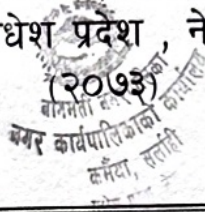 धेश प्रदेश , ने
(२०७३)
बागमती
नगर कार्यपालिकाको कार्यालय
कर्मैया, सर्लाही